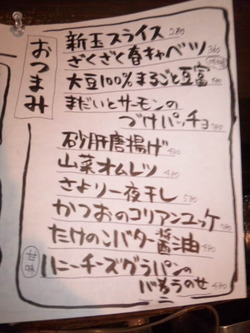 おつまみ
新玉スライス 280
ざくざく春キャベツ 380
大豆100%まるごと豆富
まだいとサーモンの
づけパッチョ
砂肝唐揚げ
山菜オムレツ
さより一夜干し
かつおのコリアンユッケ
たけのこバター醤油
甘味
ハニーチーズグラパンの
バニラのせ